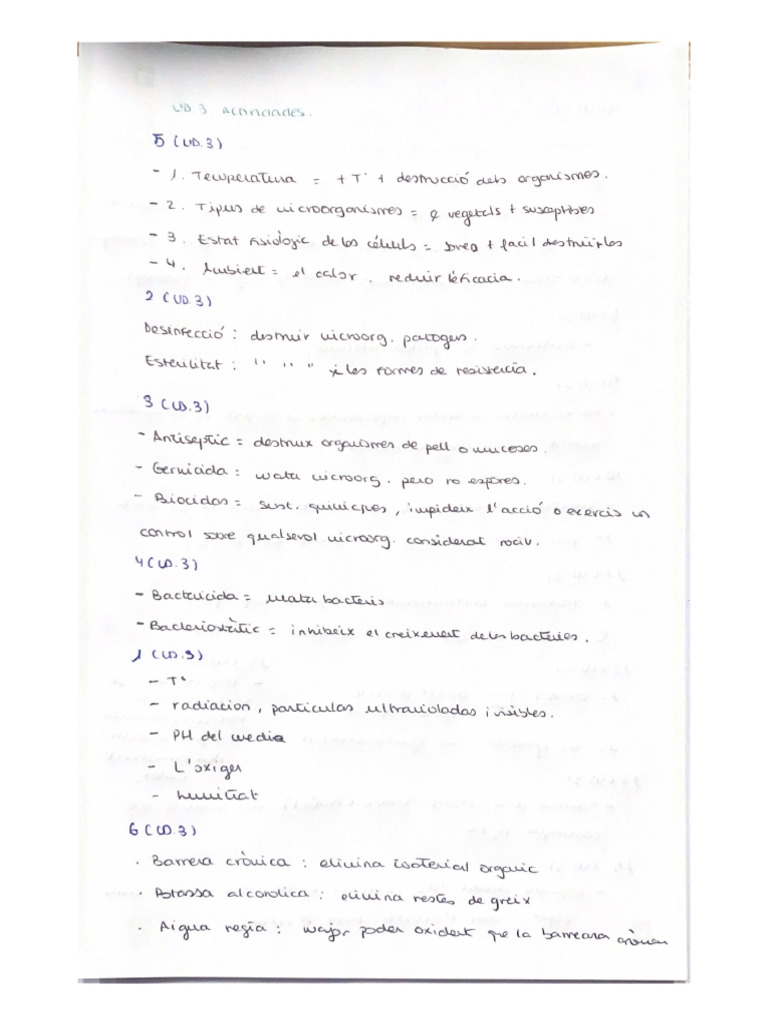 UD.3 Activitades.
5 (UD.3)
- 1. Temperatura = + Tª + destrucció dels organismes.
- 2. Tipus de microorganismes = vegetals + susceptibles
- 3. Estat fisiològic de los cèlules = Jove + facil destruirlos
- 4. Ambient = el calor. reduir l'eficacia.
2 (UD.3)
Desinfecció: destruir microorg. patogens.
Esterilitat: " " " i les formes de resistencia.
3 (UD.3)
- Antiseptic = destruix organismes de pell o mucoses.
- Germicida: mata microorg. pero no espores.
- Biocidas = sust. quimiques, impideix l'acció o exercis un
control sobre qualsevol microorg. considerat nociv.
4 (UD.3)
- Bactericida = Mata bacteris
- Bacteriostàtic = inhibeix el creixement de les bacteries.
1 (UD.3)
- Tª
- radiacion, particulas ultravioladas i visibles.
- PH del media
- L'oxigen
- humitat
6 (UD.3)
· Barrera cròmica: elimina material organic
· Potassa alcoholica: elimina restes de greix
· Aigua regia: major poder oxidant que la barreara cròmica